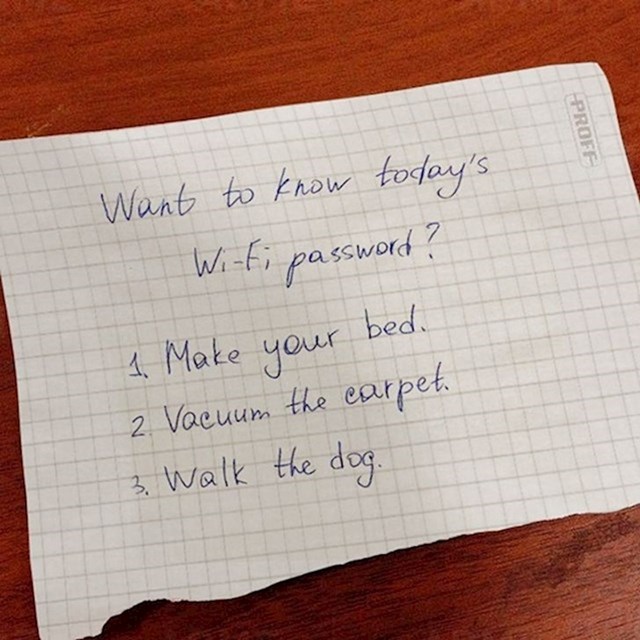 PROFF
Want to know today's
Wi-Fi password?
1. Make your bed.
2 Vacuum the carpet.
3. Walk the dog.